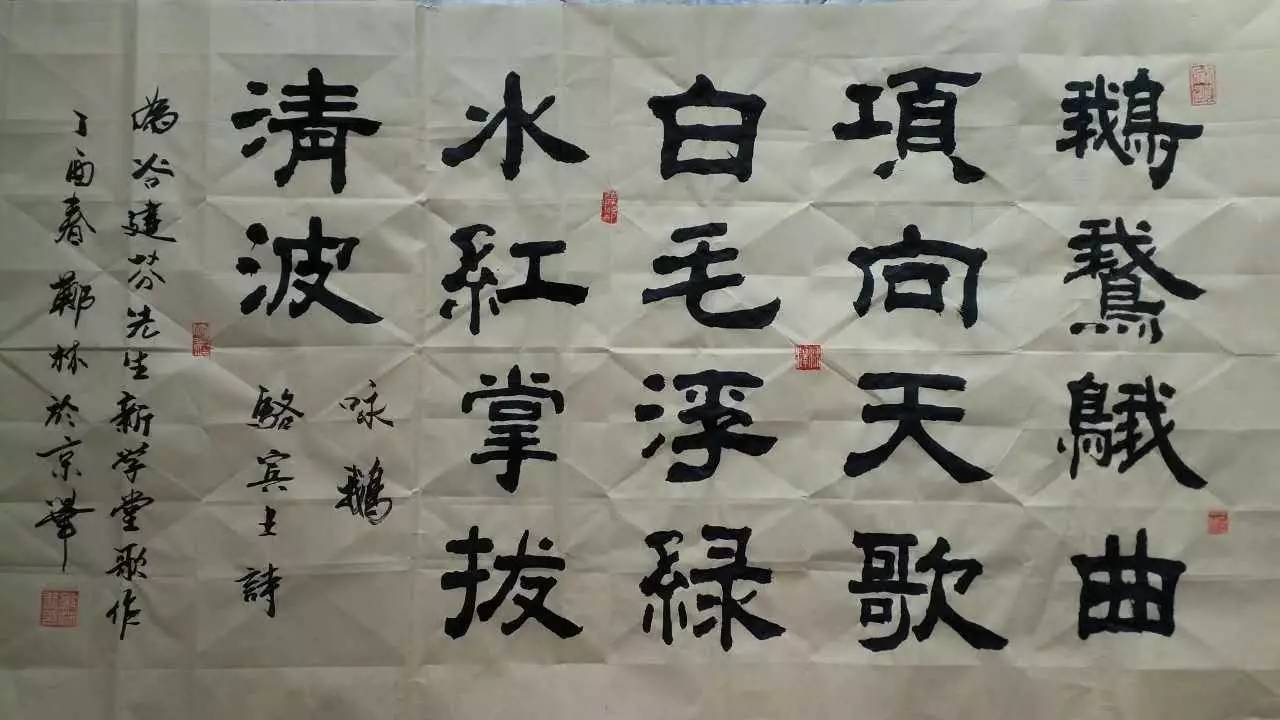 鵝鵞䳘曲
項向天歌
白毛浮緑
水紅掌拔
清波
咏鵝
駱宾王詩
為谷建芬先生新学堂歌作
丁酉春鄭林於京華